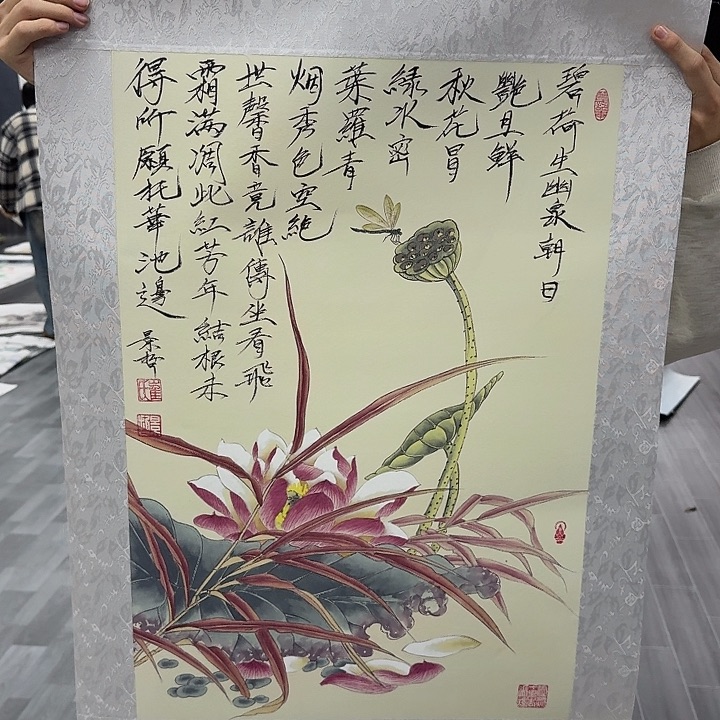 碧荷生幽泉朝日
艷且鮮
秋花冒
綠水密
葉羅青
烟秀色空絕
世馨香竟誰傳坐看飛
霜滿凋此紅芳年結根未
得所願托華池邊